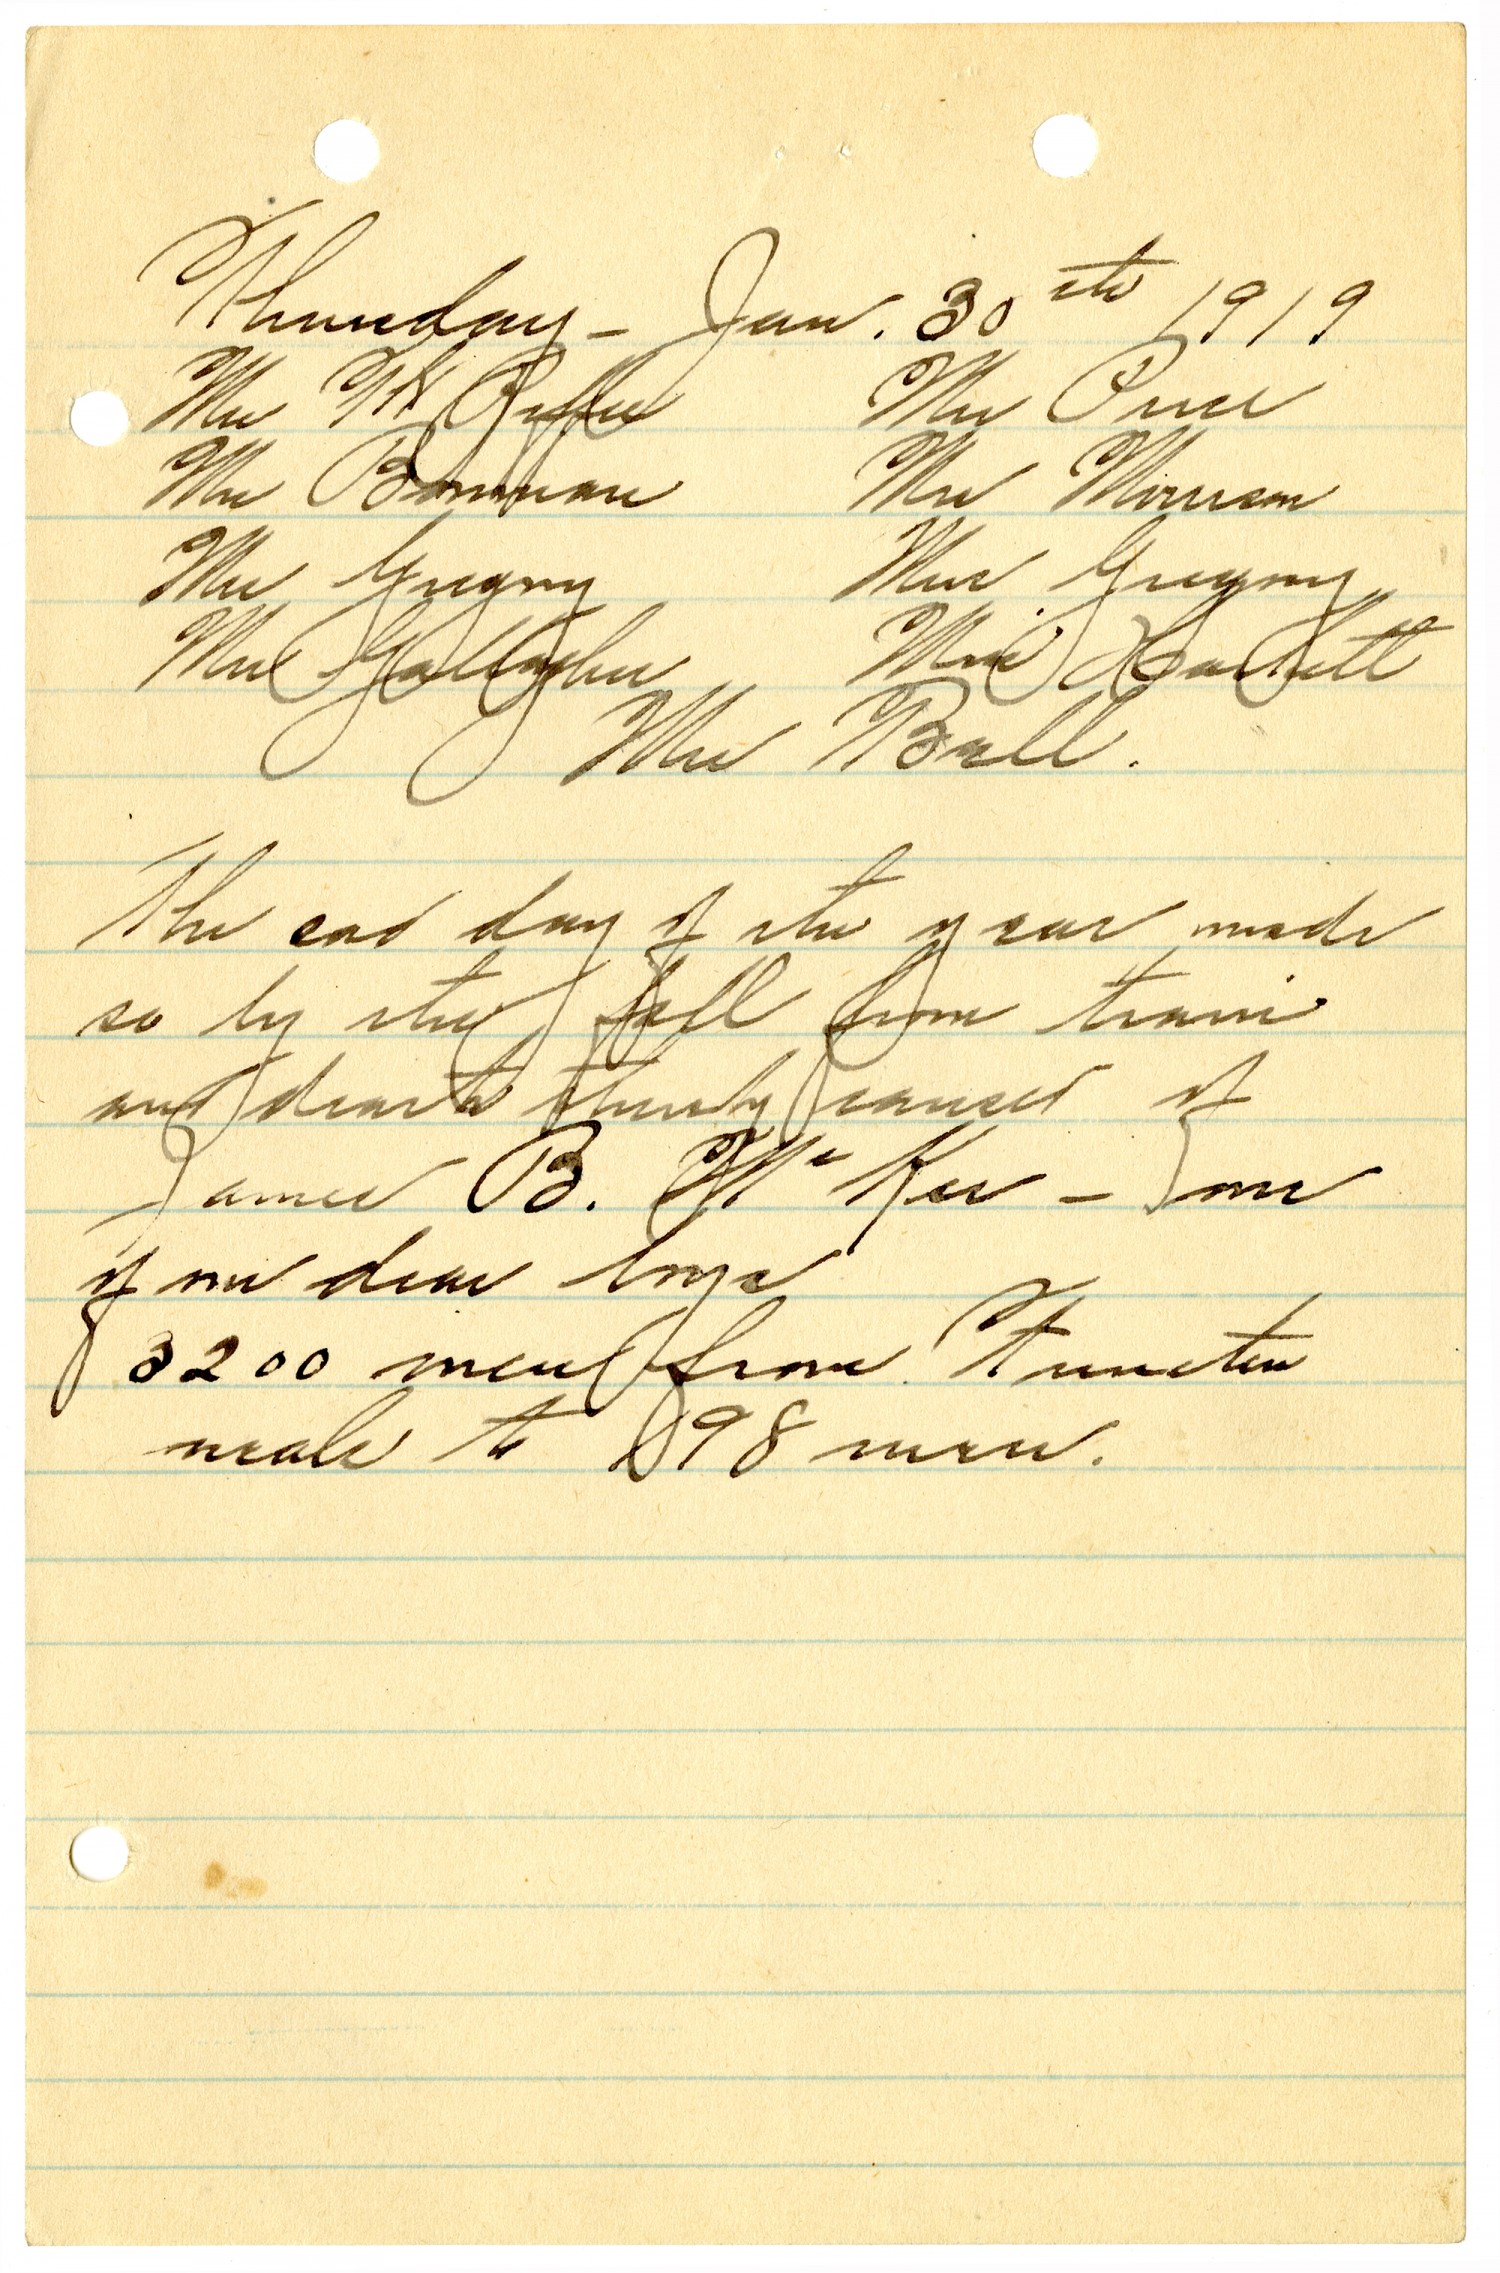 Thursday - Jan. 30th 1919
Mrs Mrs Price
Mrs Bowman Mrs Morrison
Mrs Gregory Miss Gregory
Mrs Gallagher Miss Hackett
Mrs Ball.
The sad day of the year made
so by the fall from train
and death thereby caused of
James B. McKee - one
of our dear boys
3200 men from
meals to 198 men.